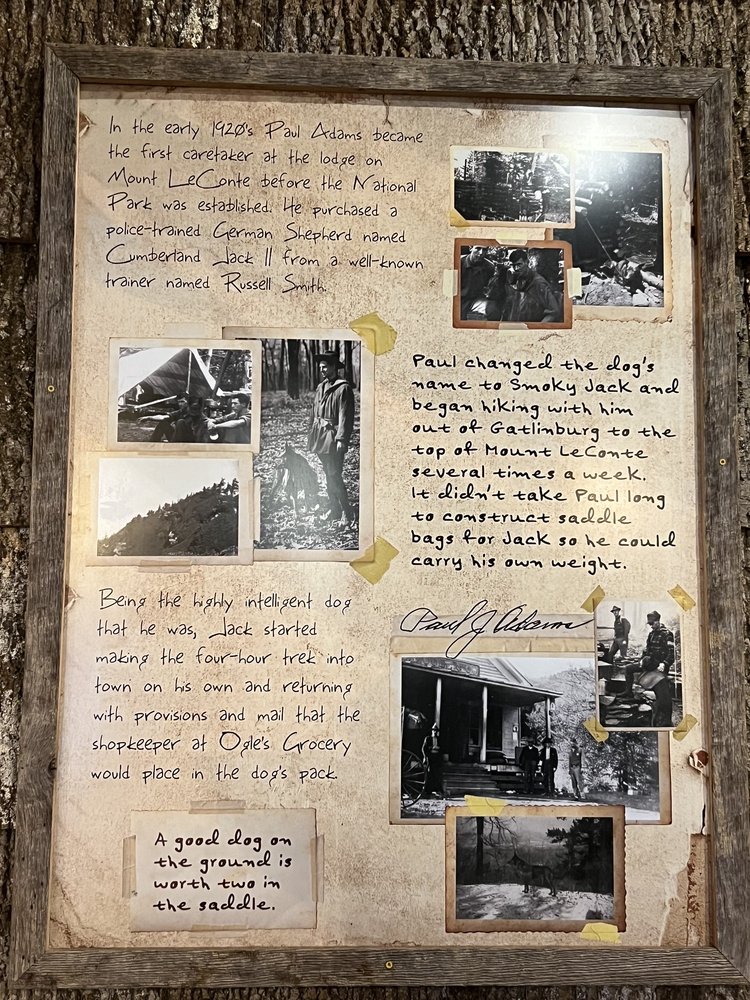 In the early 1920's Paul Adams became
the first caretaker at the lodge on
Mount LeConte before the National
Park was established. He purchased a
police-trained German Shepherd named
Cumberland Jack II from a well-known
trainer named Russell Smith.
Paul changed the dog's
name to Smoky Jack and
began hiking with him
out of Gatlinburg to the
top of Mount LeConte
several times a week.
It didn't take Paul long
to construct saddle
bags for Jack so he could
carry his own weight.
Being the highly intelligent dog
that he was, Jack started
making the four-hour trek into
town on his own and returning
with provisions and mail that the
shopkeeper at Ogle's Grocery
would place in the dog's pack.
Paul J Adams
A good dog on
the ground is
worth two in
the saddle.